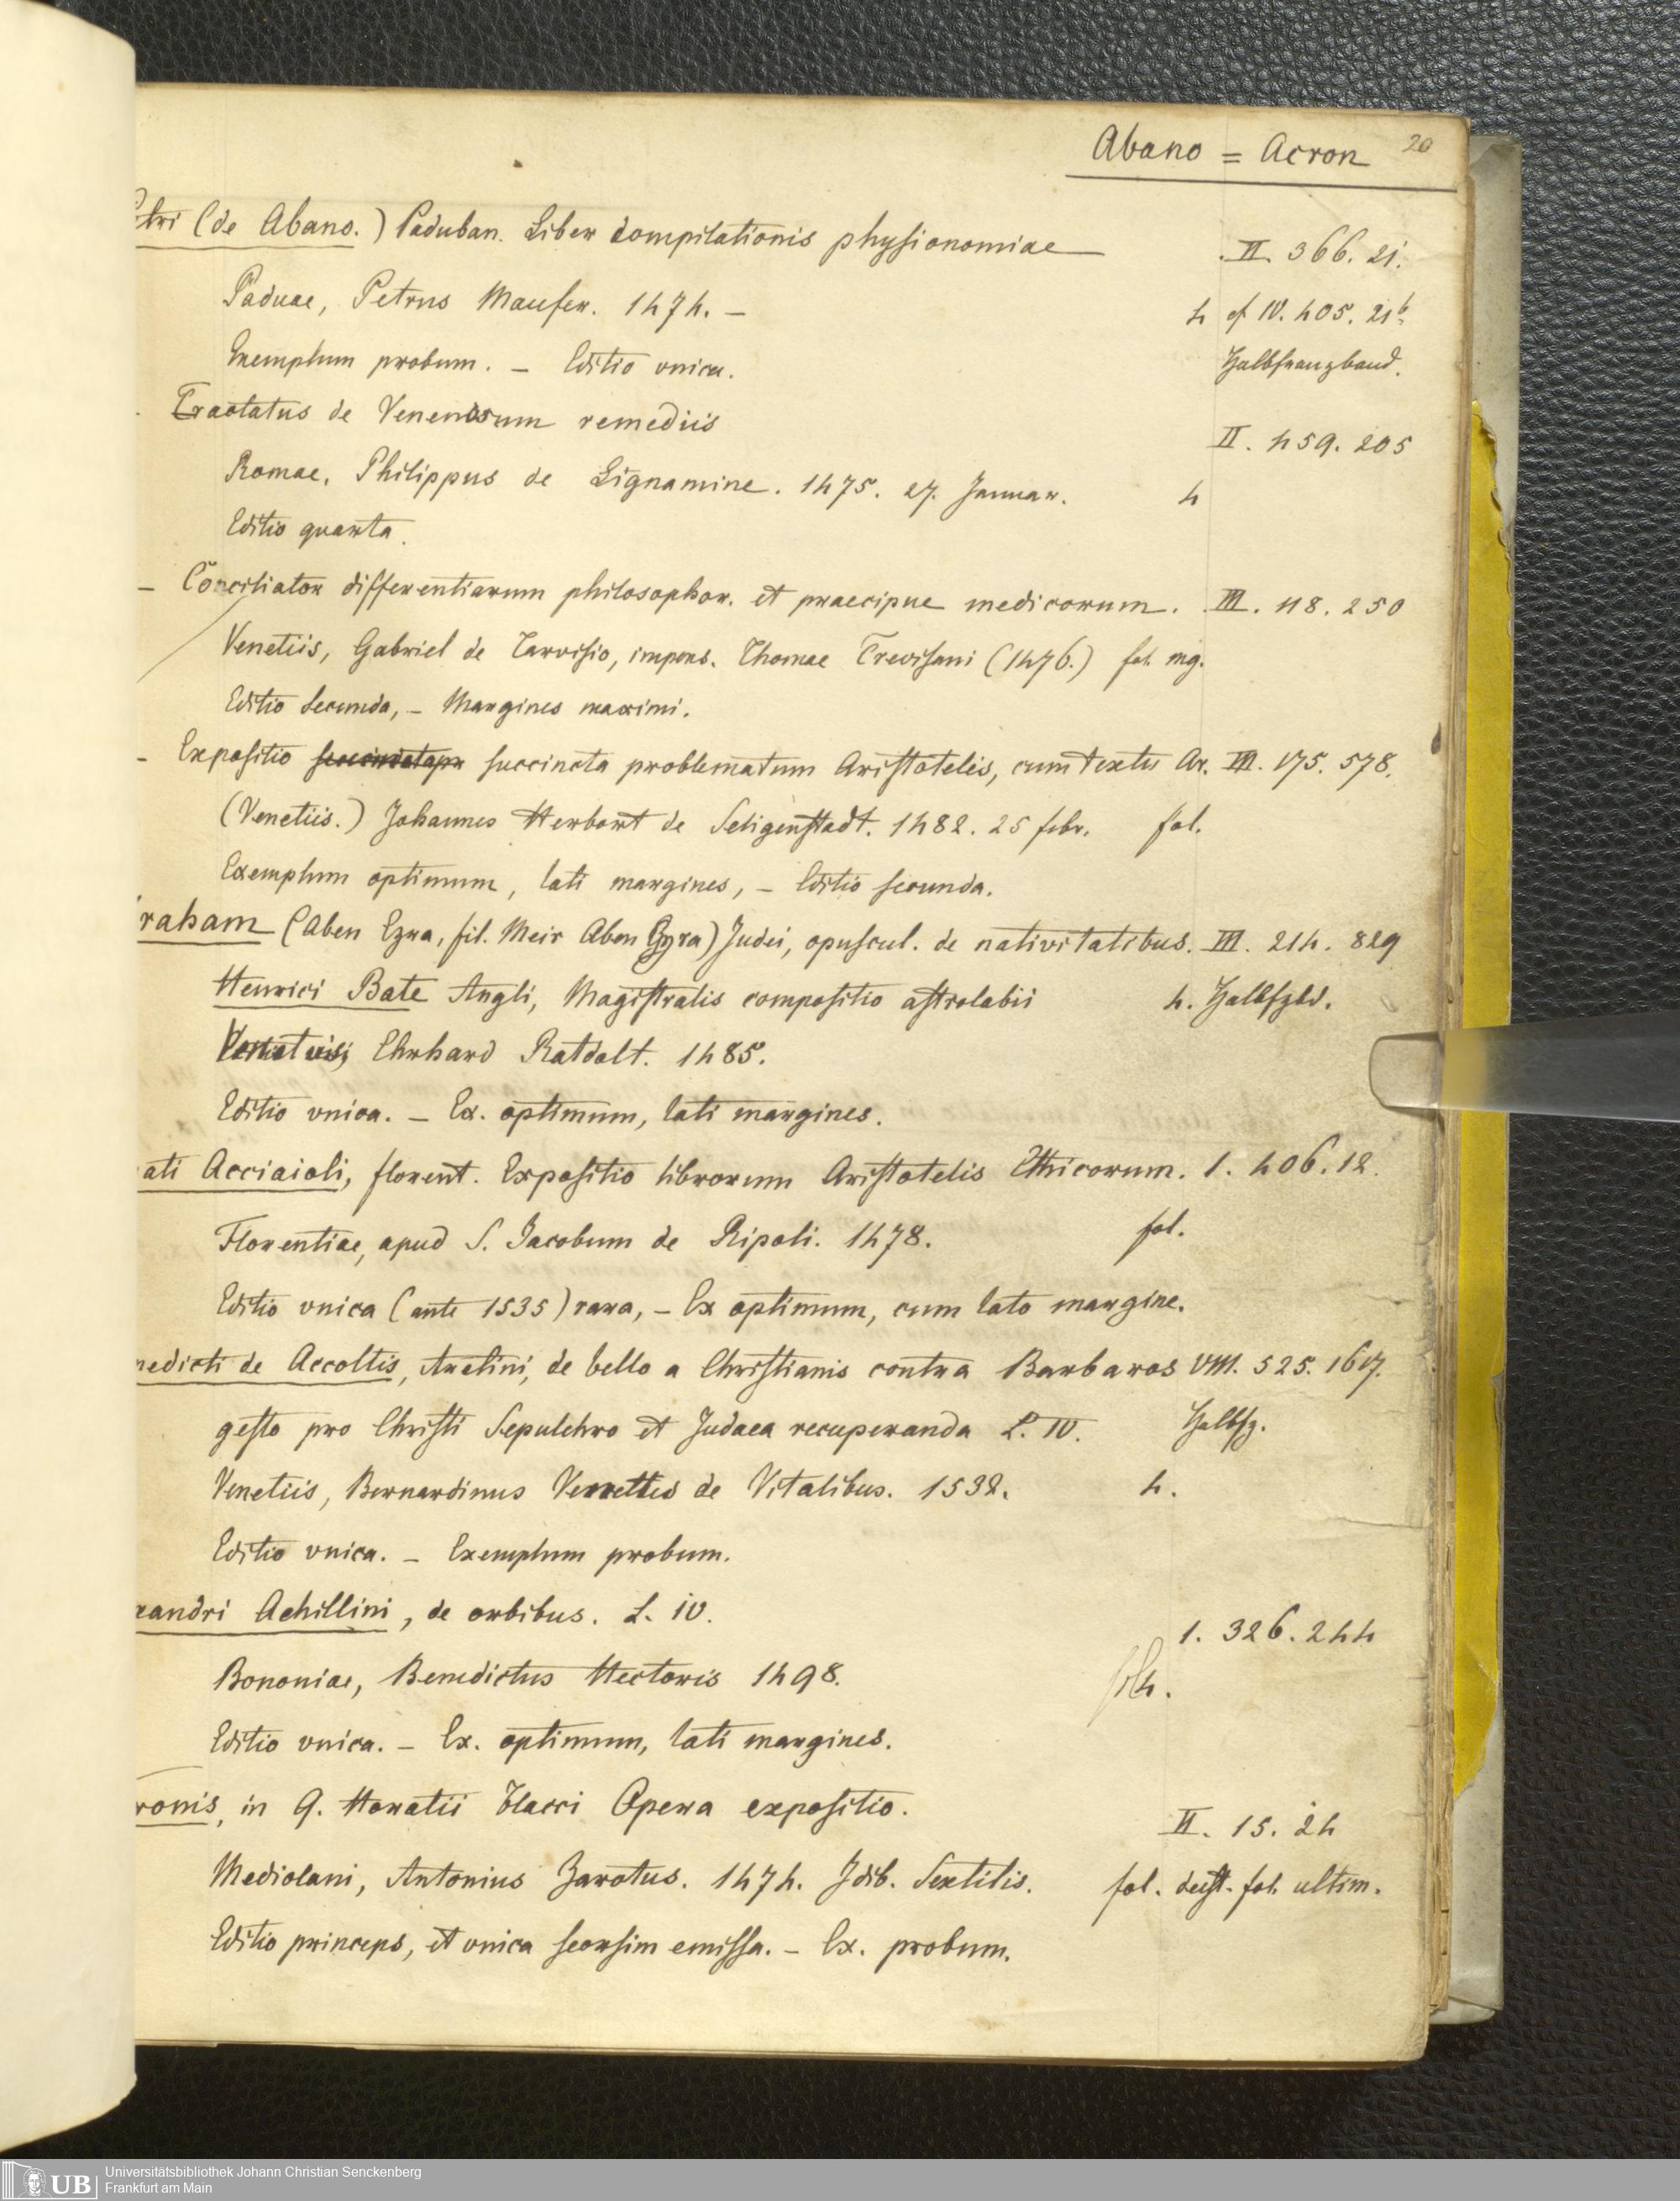 Abano = Acron 20
etri (de Abano.) Paduban. Liber compilationis physionomiae II. 366. 21.
Paduae, Petrus Maufer. 1474. – 4 cf IV. 405. 21b.
Exemplum probum. – Editio vnica. Halbfranzband.
Tractatus de Venenorum remediis II. 459. 205
Romae, Philippus de Lignamine. 1475. 27. Januar. 4
Editio quarta.
– Conciliator differentiarum philosophor. et praecipue medicorum. III. 118. 250
Venetiis, Gabriel de Tarvisio, impens. Thomae Trevisani (1476.) fol. mg.
Editio secunda, – Margines maximi.
– Expositio succincta problematum Aristotelis, cum textu Ar. III. 175. 578.
(Venetiis.) Johannes Herbort de Seligenstadt. 1482. 25 febr. fol.
Exemplum optimum, lati margines, – Editio secunda.
raham (Aben Ezra, fil. Meir Aben Ezra) Judei, opuscul. de nativitatibus. III. 214. 829
Henrici Bate Angli, Magistralis compositio astrolabii 4. Halbfzbd.
Venetiis, Ehrhard Ratdolt. 1485.
Editio vnica. – Ex. optimum, lati margines.
ati Acciaioli, florent. Expositio librorum Aristotelis Ethicorum. 1. 406. 12.
Florentiae, apud S. Jacobum de Ripoli. 1478. fol.
Editio vnica (ante 1535) rara, – Ex optimum, cum lato margine.
nedicti de Accoltis, Aretini, de bello a Christianis contra Barbaros VIII. 525. 1617.
gesto pro Christi Sepulchro et Judaea recuperanda L. IV. Halbfz.
Venetiis, Bernardinus de Vitalibus. 1532. 4.
Editio vnica. – Exemplum probum.
xandri Achillini, de orbibus. L. IV. 1. 326. 244
Bononiae, Benedictus Hectoris 1498. 4.
Editio vnica. – Ex. optimum, lati margines.
ronis, in Q. Horatii Flacci Opera expositio. II. 15. 24
Mediolani, Antonius Zarotus. 1474. Idib. Sextilis. fol. deest. fol. ultim.
Editio princeps, et vnica seorsim emissa. – Ex. probum.
UB
Universitätsbibliothek Johann Christian Senckenberg
Frankfurt am Main